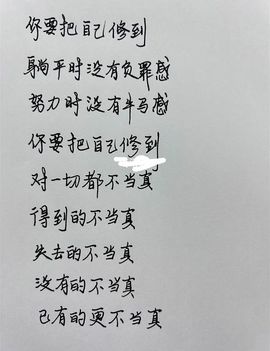 你要把自己修到
躺平时没有负罪感
努力时没有牛马感
你要把自己修到
对一切都不当真
得到的不当真
失去的不当真
没有的不当真
已有的更不当真